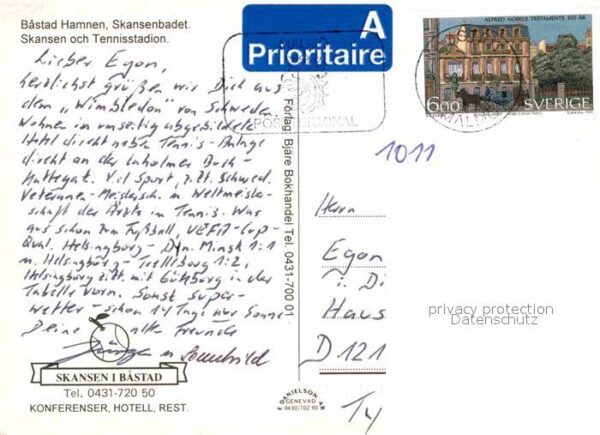 Båstad Hamnen, Skansenbadet.
Skansen och Tennisstadion.
A
Prioritaire
ALFRED NOBELS TESTAMENTE 100 ÅR
6.00 SVERIGE
MALMÖ
POSTTERMINAL
Lieber Egon,
herzlichst grüßen wir Dich aus
dem "Wimbledon" von Schweden
Wohnen in umseitig abgebildeten
Hotel direkt neben Tennis-Anlage
direkt an der Laholmer Buch-
Kattegat. Viel Sport, z. Zt. Schwed.
Veteranen-Meistersch. u. Weltmeister-
schaft der Ärzte im Tennis. Was
aus schon zum Fußball, UEFA-Cup-
Qual. Helsingborg - Dyn. Minsk 1:1
u. Helsingborg - Trelleborg 1:2,
Helsingborg z. Zt. mit Göteborg in der
Tabelle vorn. Sonst super-
wetter - schon 14 Tage nur Sonne
Deine alten Freunde
u.
SKANSEN I BÅSTAD
Tel. 0431-720 50
KONFERENSER, HOTELL, REST.
Förlag: Bjäre Bokhandel Tel. 0431-700 01
DANIELSON
GENEVAD
0430/702 90
1011
Herrn
Egon
i. Di
Haus
D 121
privacy protection
Datenschutz